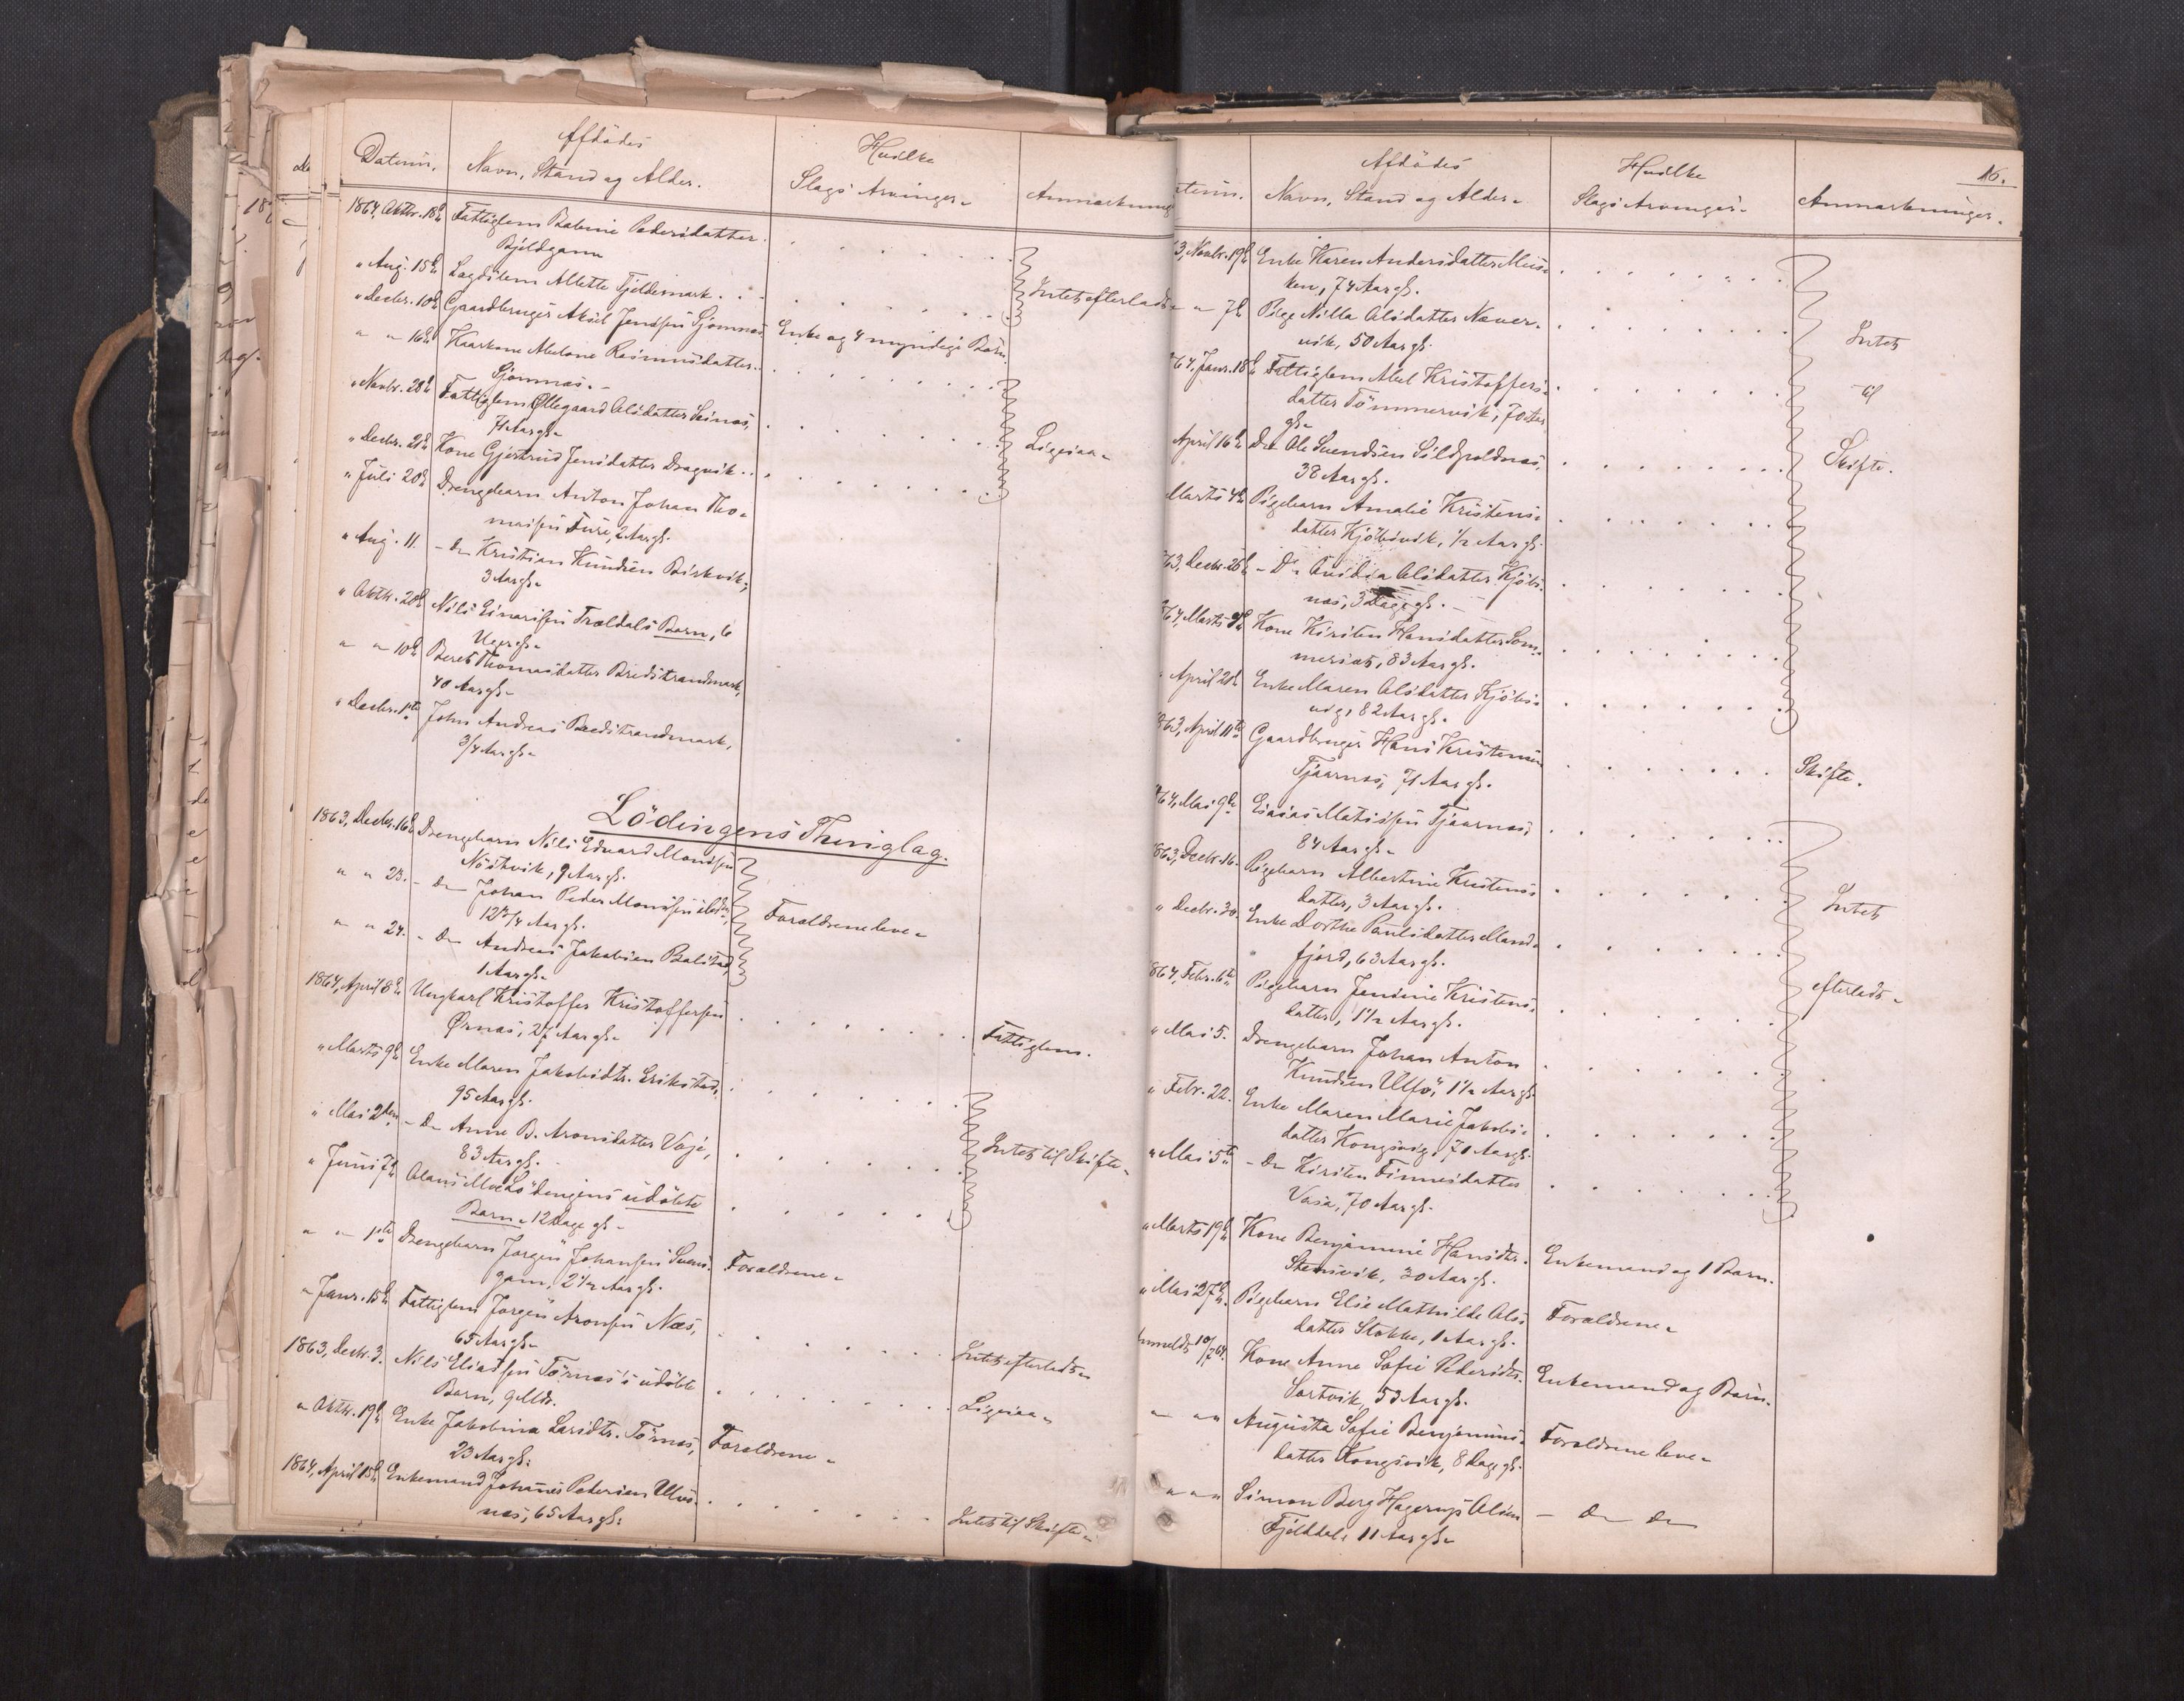 Datum.
Afdödes
Navn, Stand og Alder.
Hvilke
Slags Arvinger.
Anmærkning
1864, Oktbr. 18de Fattiglem Pedersdatter
" Aug. 15de Lægdslem Allette Fjeldemark
Intet efterladt.
" Decbr. 10de Gaardbruger Aksel Jensen Sjomnæs, Enke og 4 myndige Børn.
" " 16de Rasmusdatter
Sjomnæs.
" Novbr. 28de Fattiglem Ollegaard Olsdatter
71 Aar gl.
" Decbr. 21de Kone Gjertrud Jensdatter Dragvik
Ligesaa.
" Juli 20de Drengebarn Anton Johan Tho-
massen 2 Aar gl.
" Aug. 11. - Do Kristian Knudsen
3 Aar gl.
" Oktb. 28de Nils Einarsen Trældals Barn, 6
Uger gl.
" " 10de Beret Thomasdatter Bredstrandmark,
40 Aar gl.
" Decbr. 1ste John Andreas Bredstrandmark,
3/4 Aar gl.
Lödingens Thinglag.
1863, Decbr. 16de Drengebarn Nils Edvard Monsen
9 Aar gl.
" " 23. - Do Johan Peder Monsen
12 3/4 Aar gl.
Forældrene leve.
" " 24. - Do Andreas Jakobsen
1 Aar gl.
1864, April 8de Ungkarl Kristoffer Kristoffersen
Ørnæs, 27 Aar gl.
Fattiglem.
" Marts 9de Enke Maren Jakobsdtr. Erikstad,
95 Aar gl.
" Mai 2den - Do Anne B. Aronsdatter
83 Aar gl.
Intet til Skifte.
" Juni 7de Lödingens udöbte
Barn, 12 Dage gl.
" " 1ste Drengebarn Jørgen Johansen
2 1/2 Aar gl.
Forældrene.
" Janr. 15de Fattiglem Jørgen Aronsen Næs,
65 Aar gl.
Intet efterladt.
1863, Decbr. 3. Nils Eliassen Törnæs's udöbte
Barn,
Ligesaa.
" Oktbr. 19de Enke Jakobina Larsdtr. Törnæs,
23 Aar gl.
Forældrene.
1864, April 15de Enkemand Johannes Pedersen
næs, 65 Aar gl.
Intet til Skifte.
16.
Afdödes
Navn, Stand og Alder.
Hvilke
Slags Arvinger.
Anmærkninger.
3, Novbr. 19de Enke Karen Andersdatter
ken, 74 Aar gl.
" 7de Pige Nilla Olsdatter Næver-
vik, 50 Aar gl.
Intet
64, Janr. 18de Fattiglem Abel Kristoffers-
datter Tömmervik, 70 Aar
gl.
til
April 16de Do Ole Svendsen
38 Aar gl.
Skifte.
Marts 4de Pigebarn Amalie Kristens-
datter Kjöbsvik, 1/2 Aar gl.
63, Decbr. 26de - Do Olsdatter Kjöbs-
næs, 3 Dage gl.
64, Marts Kone Kirsten Hansdatter Som-
merset, 83 Aar gl.
April 20de Enke Maren Olsdatter Kjöbs-
vig, 82 Aar gl.
863, April 11te Gaardbruger Hans Kristensen
Tjaarnæs, 71 Aar gl.
Skifte.
64, Mai 9de Esaias Matissen Tjaarnæs,
84 Aar gl.
863, Decbr. 16. Pigebarn Albertine Kristens-
datter, 3 Aar gl.
Intet
" Decbr. 30. Enke Dorthe Paulsdatter Mand-
fjord, 63 Aar gl.
864, Febr. 6te Pigebarn Jensine Kristens-
datter, 1 1/2 Aar gl.
efterladt.
" Mai 5. Drengebarn Johan Anton
Knudsen 1 1/2 Aar gl.
" Febr. 22. Enke Maren Marie Jakobs-
datter Kongsvig, 70 Aar gl.
" Mai 5te - Do Kirsten Finnesdatter
70 Aar gl.
" Marts 19de Kone Benjamine Hansdtr.
Stensvik, 30 Aar gl.
Enkemand og 1 Barn.
" Mai 27de Pigebarn Elie Mathilde Ols-
datter Stokke, 1 Aar gl.
Forældrene.
10/7 64. Kone Anne Sofie Pedersdtr.
Sortvik, 53 Aar gl.
Enkemand og Børn.
" " " Augusta Sofie Benjamins-
datter Kongsvik, 8 Dage gl.
Forældrene leve.
" " " Simon Berg Hagerup Olsen
Fjelddal, 11 Aar gl.
- Do Do